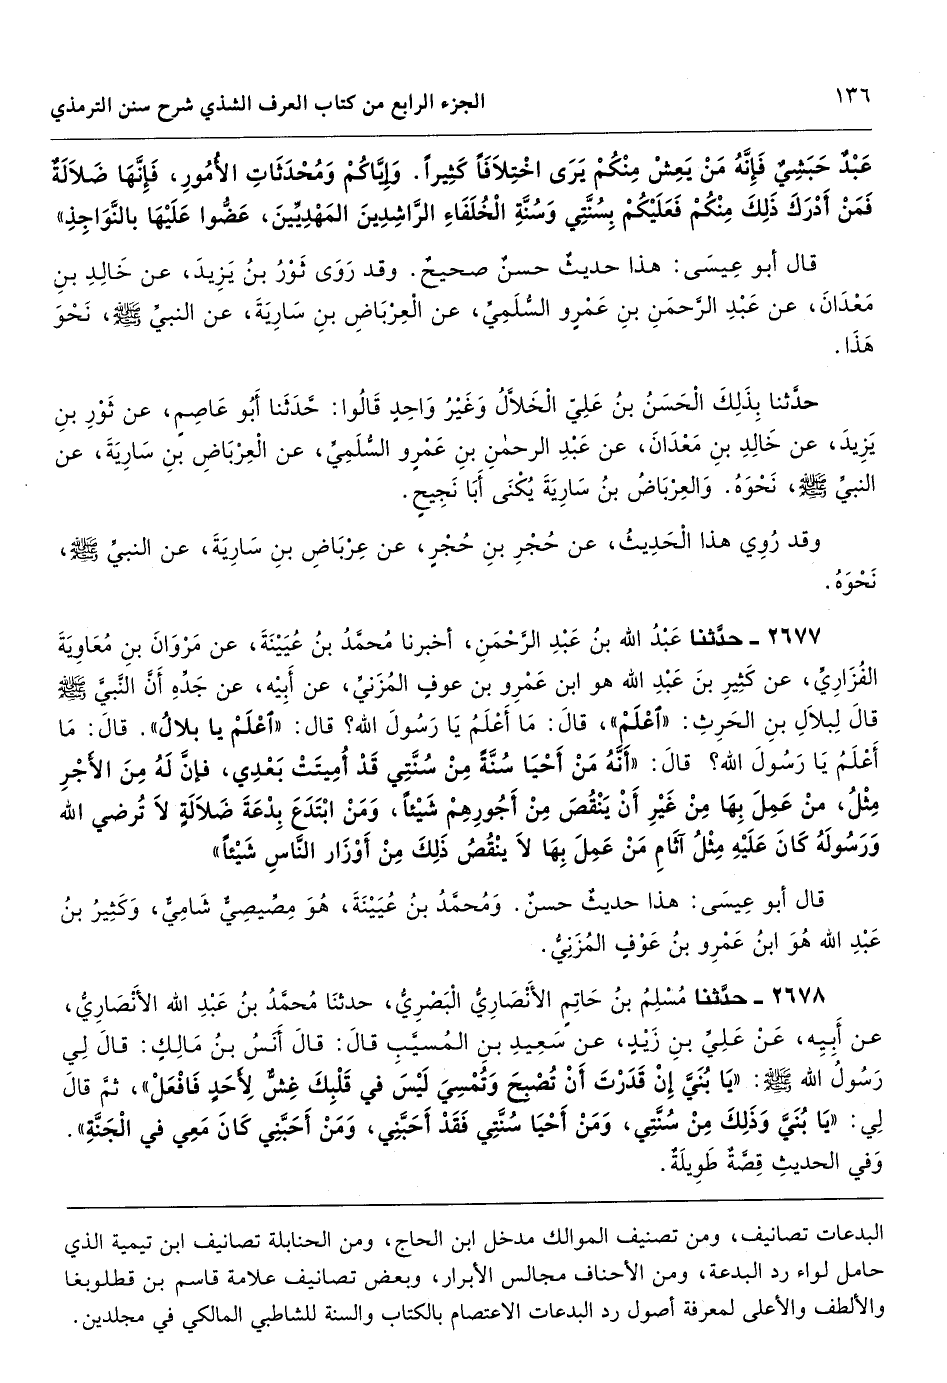 ١٣٦
الجزء الرابع من كتاب العرف الشذي شرح سنن الترمذي
عَبْدٌ حَبَشِيٌ فَإِنَّهُ مَنْ يَعِشْ مِنكُمْ يَرَى اخْتِلَافَاً كَثِيراً. وَإِيَّاكُمْ وَمُحْدَثَاتِ الأُمُورِ، فَإِنَّهَا ضَلَالَةٌ
فَمَنْ أَدْرَكَ ذَلِكَ مِنْكُمْ فَعَلَيْكُمْ بِسُنَّتِي وَسُنَّةِ الْخُلَفَاءِ الرَّاشِدِينَ المَهْدِيِّينَ، عَضُّوا عَلَيْهَا بالنَّوَاجِذِ»
قال أبو عِيسَى: هذا حديثٌ حسنٌ صحيحٌ. وقد رَوَى ثَوْرُ بنُ يَزِيدَ، عن خَالِدِ بنِ
مَعْدَانَ، عن عَبْدِ الرَّحمَنِ بنِ عَمْرِو السُّلَمِيِّ، عن الْعِرْبَاضِ بنِ سَارِيَةَ، عن النبيِّ ﷺ، نَحْوَ
هَذَا.
حدَّثنا بِذَلِكَ الْحَسَنُ بنُ عَلِيّ الْخَلاَّلُ وَغَيْرُ وَاحِدٍ قَالُوا: حَّدَثَنا أَبُو عَاصِمٍ، عن ثَوْرِ بنِ
يَزِيدَ، عن خَالِدِ بنِ مَعْدَانَ، عن عَبْدِ الرحمٰنِ بنِ عَمْرِو السُّلَمِيِّ، عن الْعِرْبَاضِ بنِ سَارِيَةَ، عن
النبيِّ ﷺ، نَحْوَهُ. وَالعِرْبَاضُ بنُ سَارِيَةَ يُكْنَى أَبَا نَجِيحٍ.
وقد رُوِي هذا الْحَدِيثُ، عن حُجْرِ بنِ حُجْرٍ، عن عِرْبَاضِ بنِ سَارِيَةَ، عن النبيِّ ﷺ،
نَحْوَهُ.
٢٦٧٧ ـ حدَّثنا عَبْدُ الله بنُ عَبْدِ الرَّحْمَنِ، أخبرنا مُحمَّدُ بنُ عُيَيْنَةَ، عن مَرْوَانَ بنِ مُعَاوِيَةَ
الفُزَارِيِّ، عن كَثِيرِ بنَ عَبْدِ الله هو ابن عَمْرِو بن عوفِ المُزَنيِّ، عن أَبِيْه، عن جَدِّهِ أَنَّ النَّبيَّ ﷺ
قالَ لِبِلاَلِ بنِ الحَرِثِ: «اَعْلَمْ»، قالَ: مَا أَعْلَمُ يَا رَسُولَ الله؟ قال: «اَعْلَمْ يا بلالُ». قالَ: مَا
أَعْلَمُ يَا رَسُولَ الله؟ قالَ: «أَنَّهُ مَنْ أَحْيَا سُنَّةً مِنْ سُنَّتِي قَدْ أُمِيتَتْ بَعْدِي، فإنَّ لَهُ مِنَ الأجْرِ
مِثْلُ، منْ عَمِلَ بِهَا مِنْ غَيْرِ أَنْ يَنْقُصَ مِنْ أُجُورِهِمْ شَيْئاً، وَمَنْ ابْتَدَعَ بِدْعَةَ ضَلاَلَةٍ لاَ تُرضي الله
وَرَسُولَهُ كَانَ عَلَيْهِ مِثْلُ آثَامِ مَنْ عَمِلَ بِهَا لاَ يَنْقُصُ ذَلِكَ مِنْ أَوْزَارِ النَّاسِ شَيْئاً»
قال أبو عِيسَى: هذا حديثٌ حسنٌ. وَمُحمَّدُ بنُ عُيَيْنَةَ، هُوَ مِصِّيصِيٌّ شَامِيٌّ، وَكَثِيرُ بنُ
عَبْدِ الله هُوَ ابنُ عَمْرِو بنُ عَوْفٍ المُزَنِيُّ.
٢٦٧٨ ـ حدَّثنا مُسْلِمُ بنُ حَاتِمٍ الأَنْصَارِيُّ الْبَصْرِيُّ، حدثنَا مُحمَّدُ بنُ عَبْدِ الله الأَنْصَارِيُّ،
عن أَبِيِهِ، عَنْ عَلِيِّ بنِ زَيْدٍ، عن سَعِيدِ بنِ المُسيَّبِ قالَ: قالَ أَنَسُ بنُ مَالِكٍ: قالَ لِي
رَسُولُ الله ﷺ: «يَا بُنَيَّ إِنْ قَدَرْتَ أَنْ تُصْبِحَ وَتُمْسِيَ لَيْسَ في قَلْبِكَ غِشٌّ لِأَحَدٍ فَافْعَلْ»، ثمَّ قالَ
لِي: «يَا بُنَيَّ وَذَلِكَ مِنْ سُنَّتِي، وَمَنْ أَحْيَا سُنَّتِي فَقَدْ أَحَبَّنِي، وَمَنْ أَحَبَّنِي كَانَ مَعِي في الْجَنَّةِ».
وَفي الحديثِ قِصَّةٌ طَوِيلَةٌ.
البدعات تصانيف، ومن تصنيف الموالك مدخل ابن الحاج، ومن الحنابلة تصانيف ابن تيمية الذي
حامل لواء رد البدعة، ومن الأحناف مجالس الأبرار، وبعض تصانيف علامة قاسم بن قطلوبغا
والألطف والأعلى لمعرفة أصول رد البدعات الاعتصام بالكتاب والسنة للشاطبي المالكي في مجلدين.